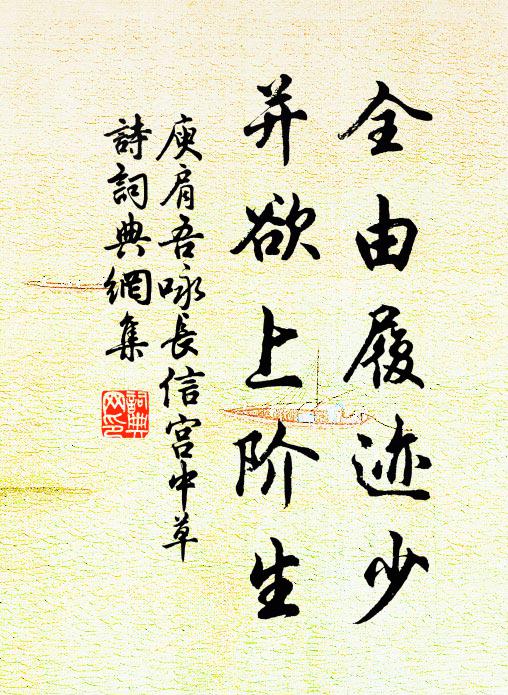 全由履迹少
并欲上阶生
庾肩吾咏長信宫中草
詩詞典網集
詞典网印